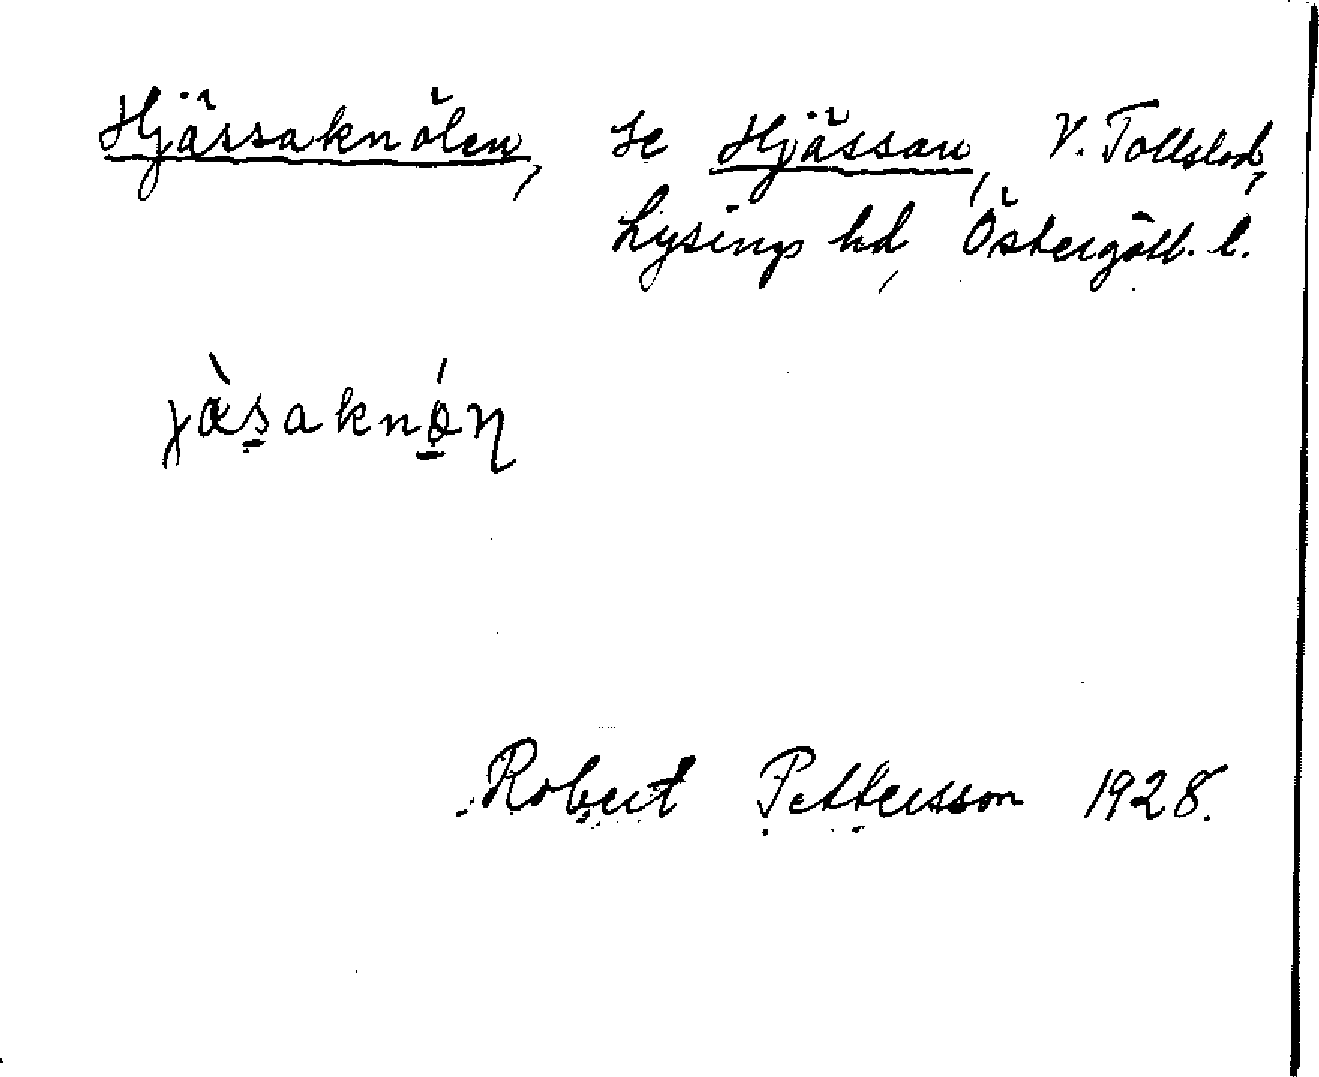 Hjässaknölen, se Hjässan, V. Tollstad,
Lysings hd, Östergötl. l.
jæ̀s̠aknǿ̠ɳ
Robert Pettersson 1928.